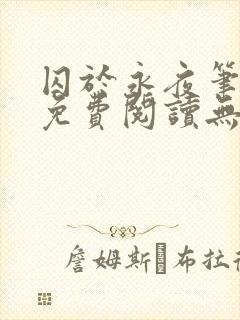 囚於永夜筆
免費閱讀無
詹姆斯·布拉